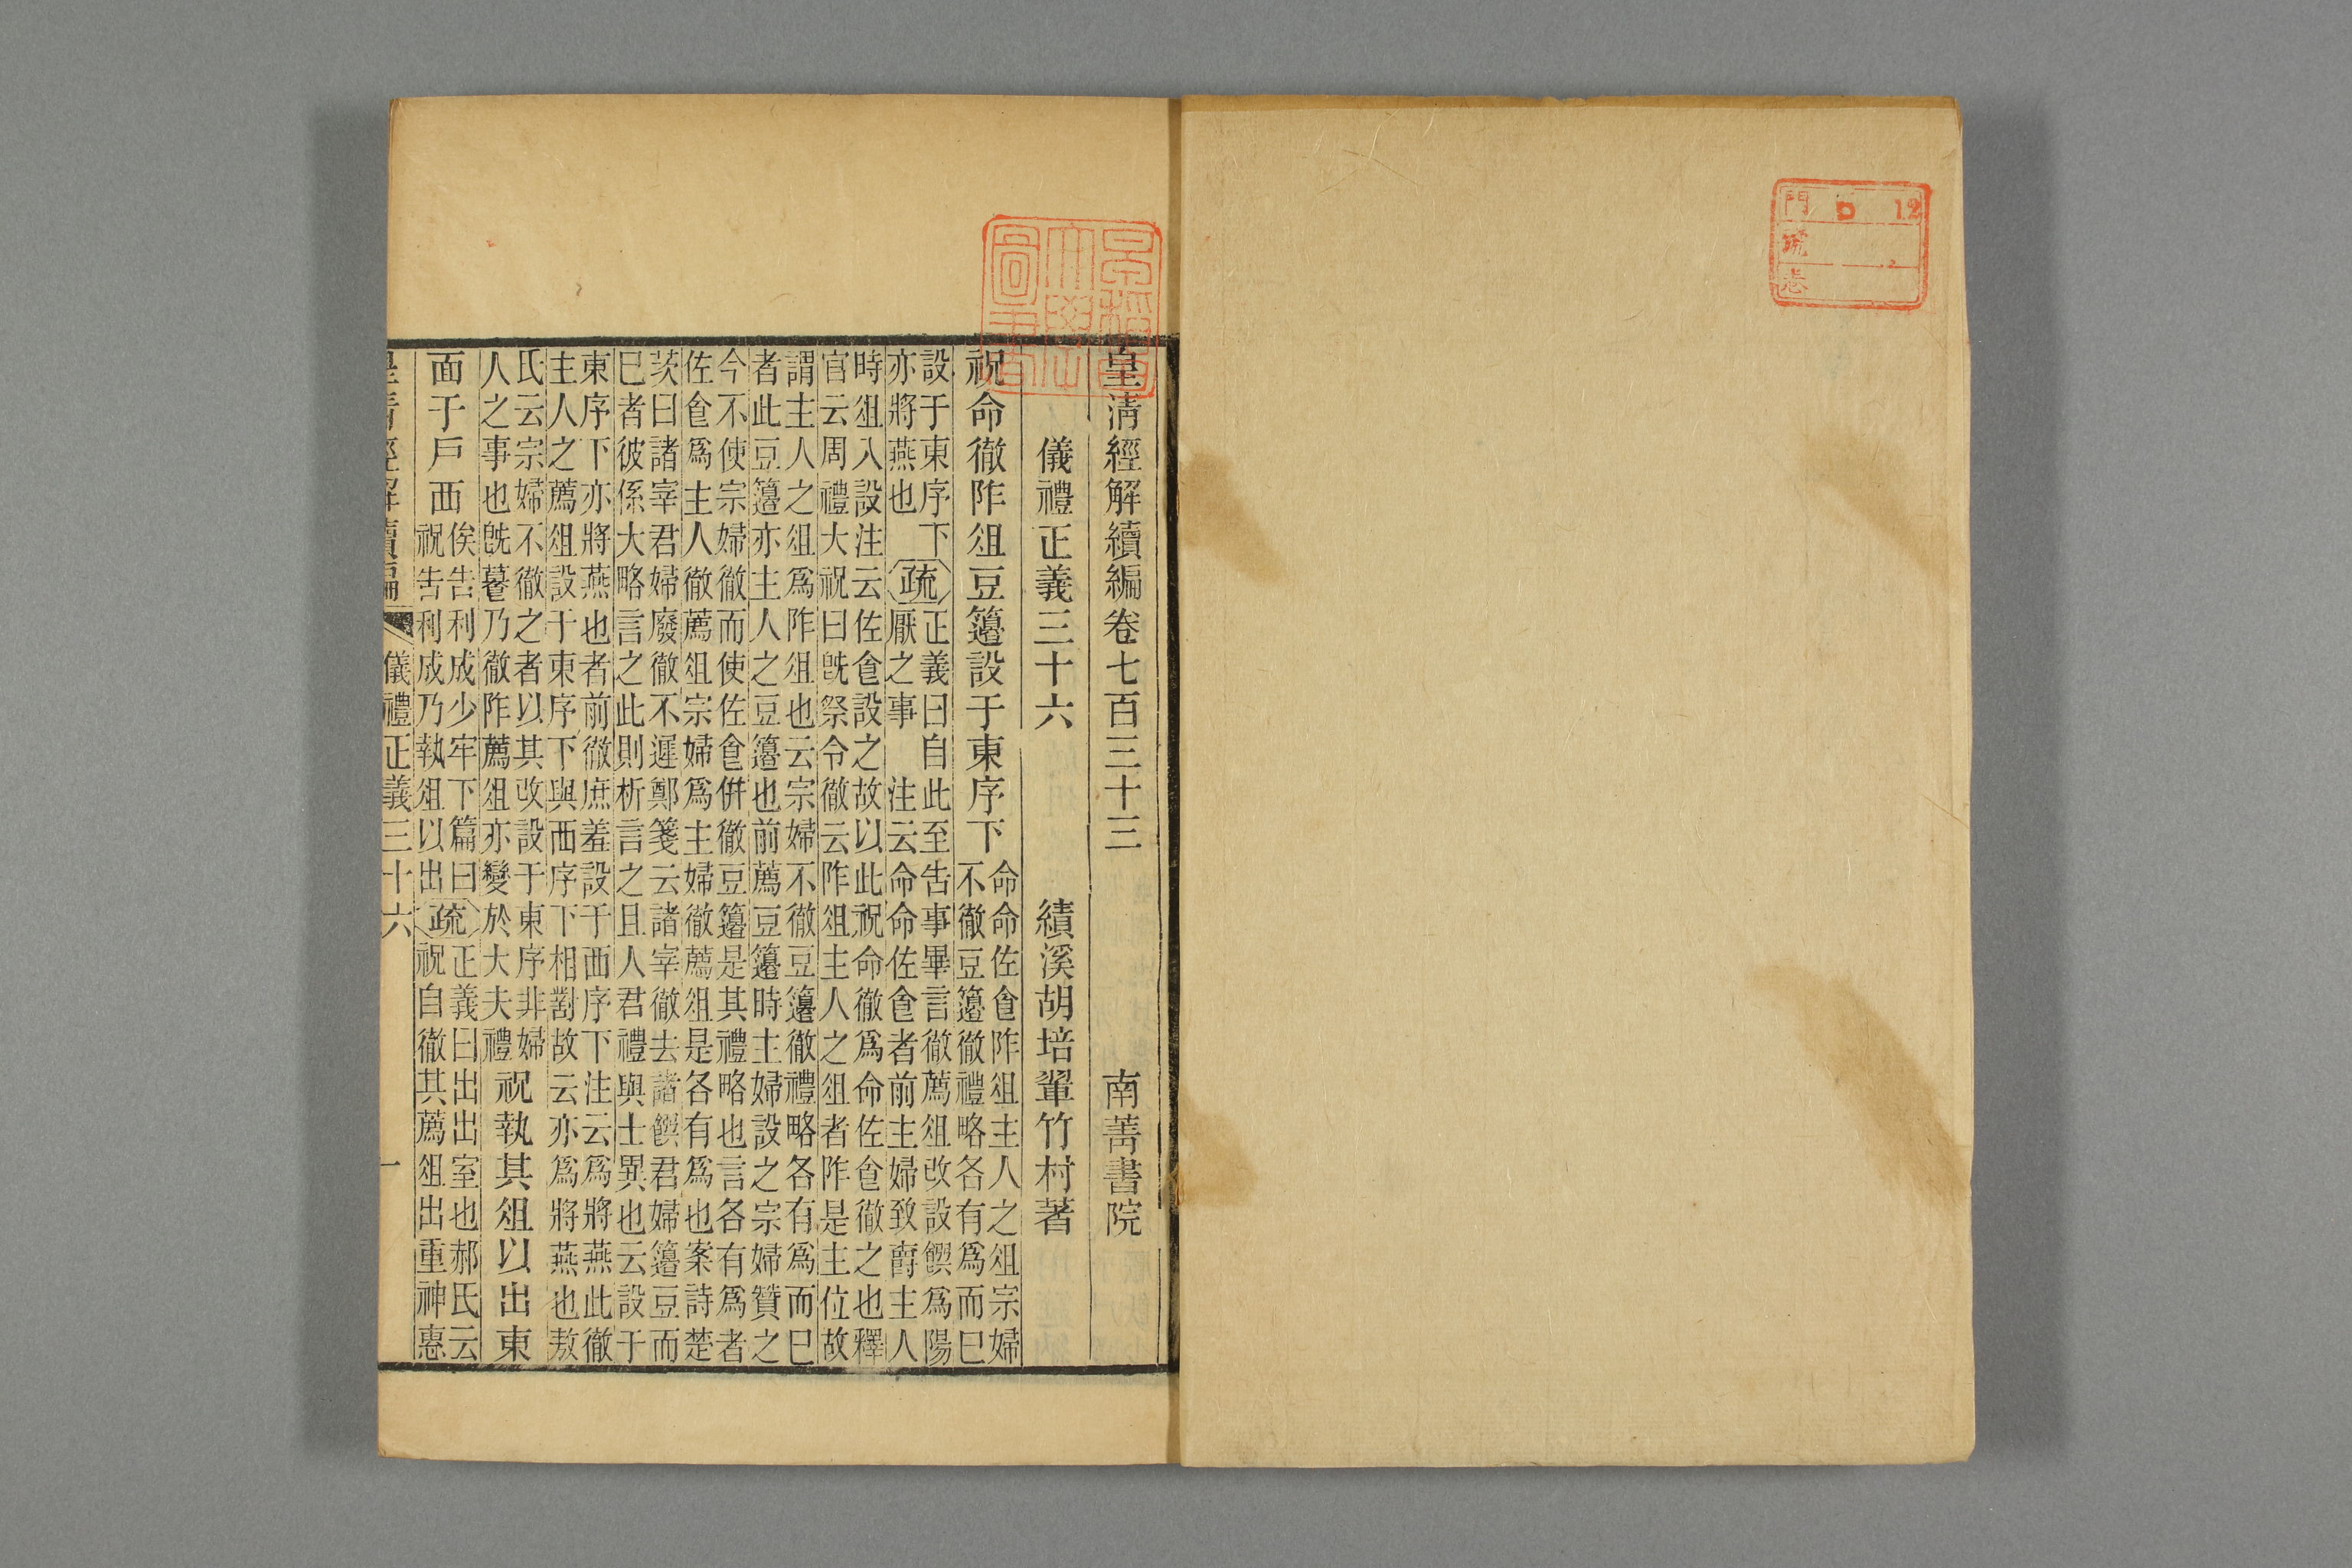 門 ロ 12
號
早稻田大學圖書
皇清經解續編卷七百三十三 南菁書院
儀禮正義三十六 績溪胡培翬竹村著
祝命徹阼俎豆籩設于東序下
命命佐食阼俎主人之俎宗婦
不徹豆籩徹禮略各有爲而已
設于東序下
亦將燕也
疏
正義曰自此至告事畢言徹薦俎改設饌爲陽
厭之事 注云命命佐食者前主婦致爵主人
時俎入設注云佐食設之故以此祝命徹爲命佐食徹之也釋
官云周禮大祝曰旣祭令徹云阼俎主人之俎者阼是主位故
謂主人之俎爲阼俎也云宗婦不徹豆籩徹禮略各有爲而已
者此豆籩亦主人之豆籩也前薦豆籩時主婦設之宗婦贊之
今不使宗婦徹而使佐食併徹豆籩是其禮略也言各有爲者
佐食爲主人徹薦俎宗婦爲主婦徹薦俎是各有爲也案詩楚
茨曰諸宰君婦廢徹不遲鄭箋云諸宰徹去諸饌君婦籩豆而
已者彼係大略言之此則析言之且人君禮與士異也云設于
東序下亦將燕也者前徹庶羞設于西序下注云爲將燕此徹
主人之薦俎設于東序下與西序下相對故云亦爲將燕也敖
氏云宗婦不徹之者以其改設于東序非婦
人之事也旣乃徹阼薦俎亦變於大夫禮
祝執其俎以出東
面于戶西
俟告利成少牢下篇曰
祝告利成乃執俎以出
疏
正義曰出出室也郝氏云
祝自徹其薦俎出重神惠
皇清經解續編 儀禮正義三十六 一